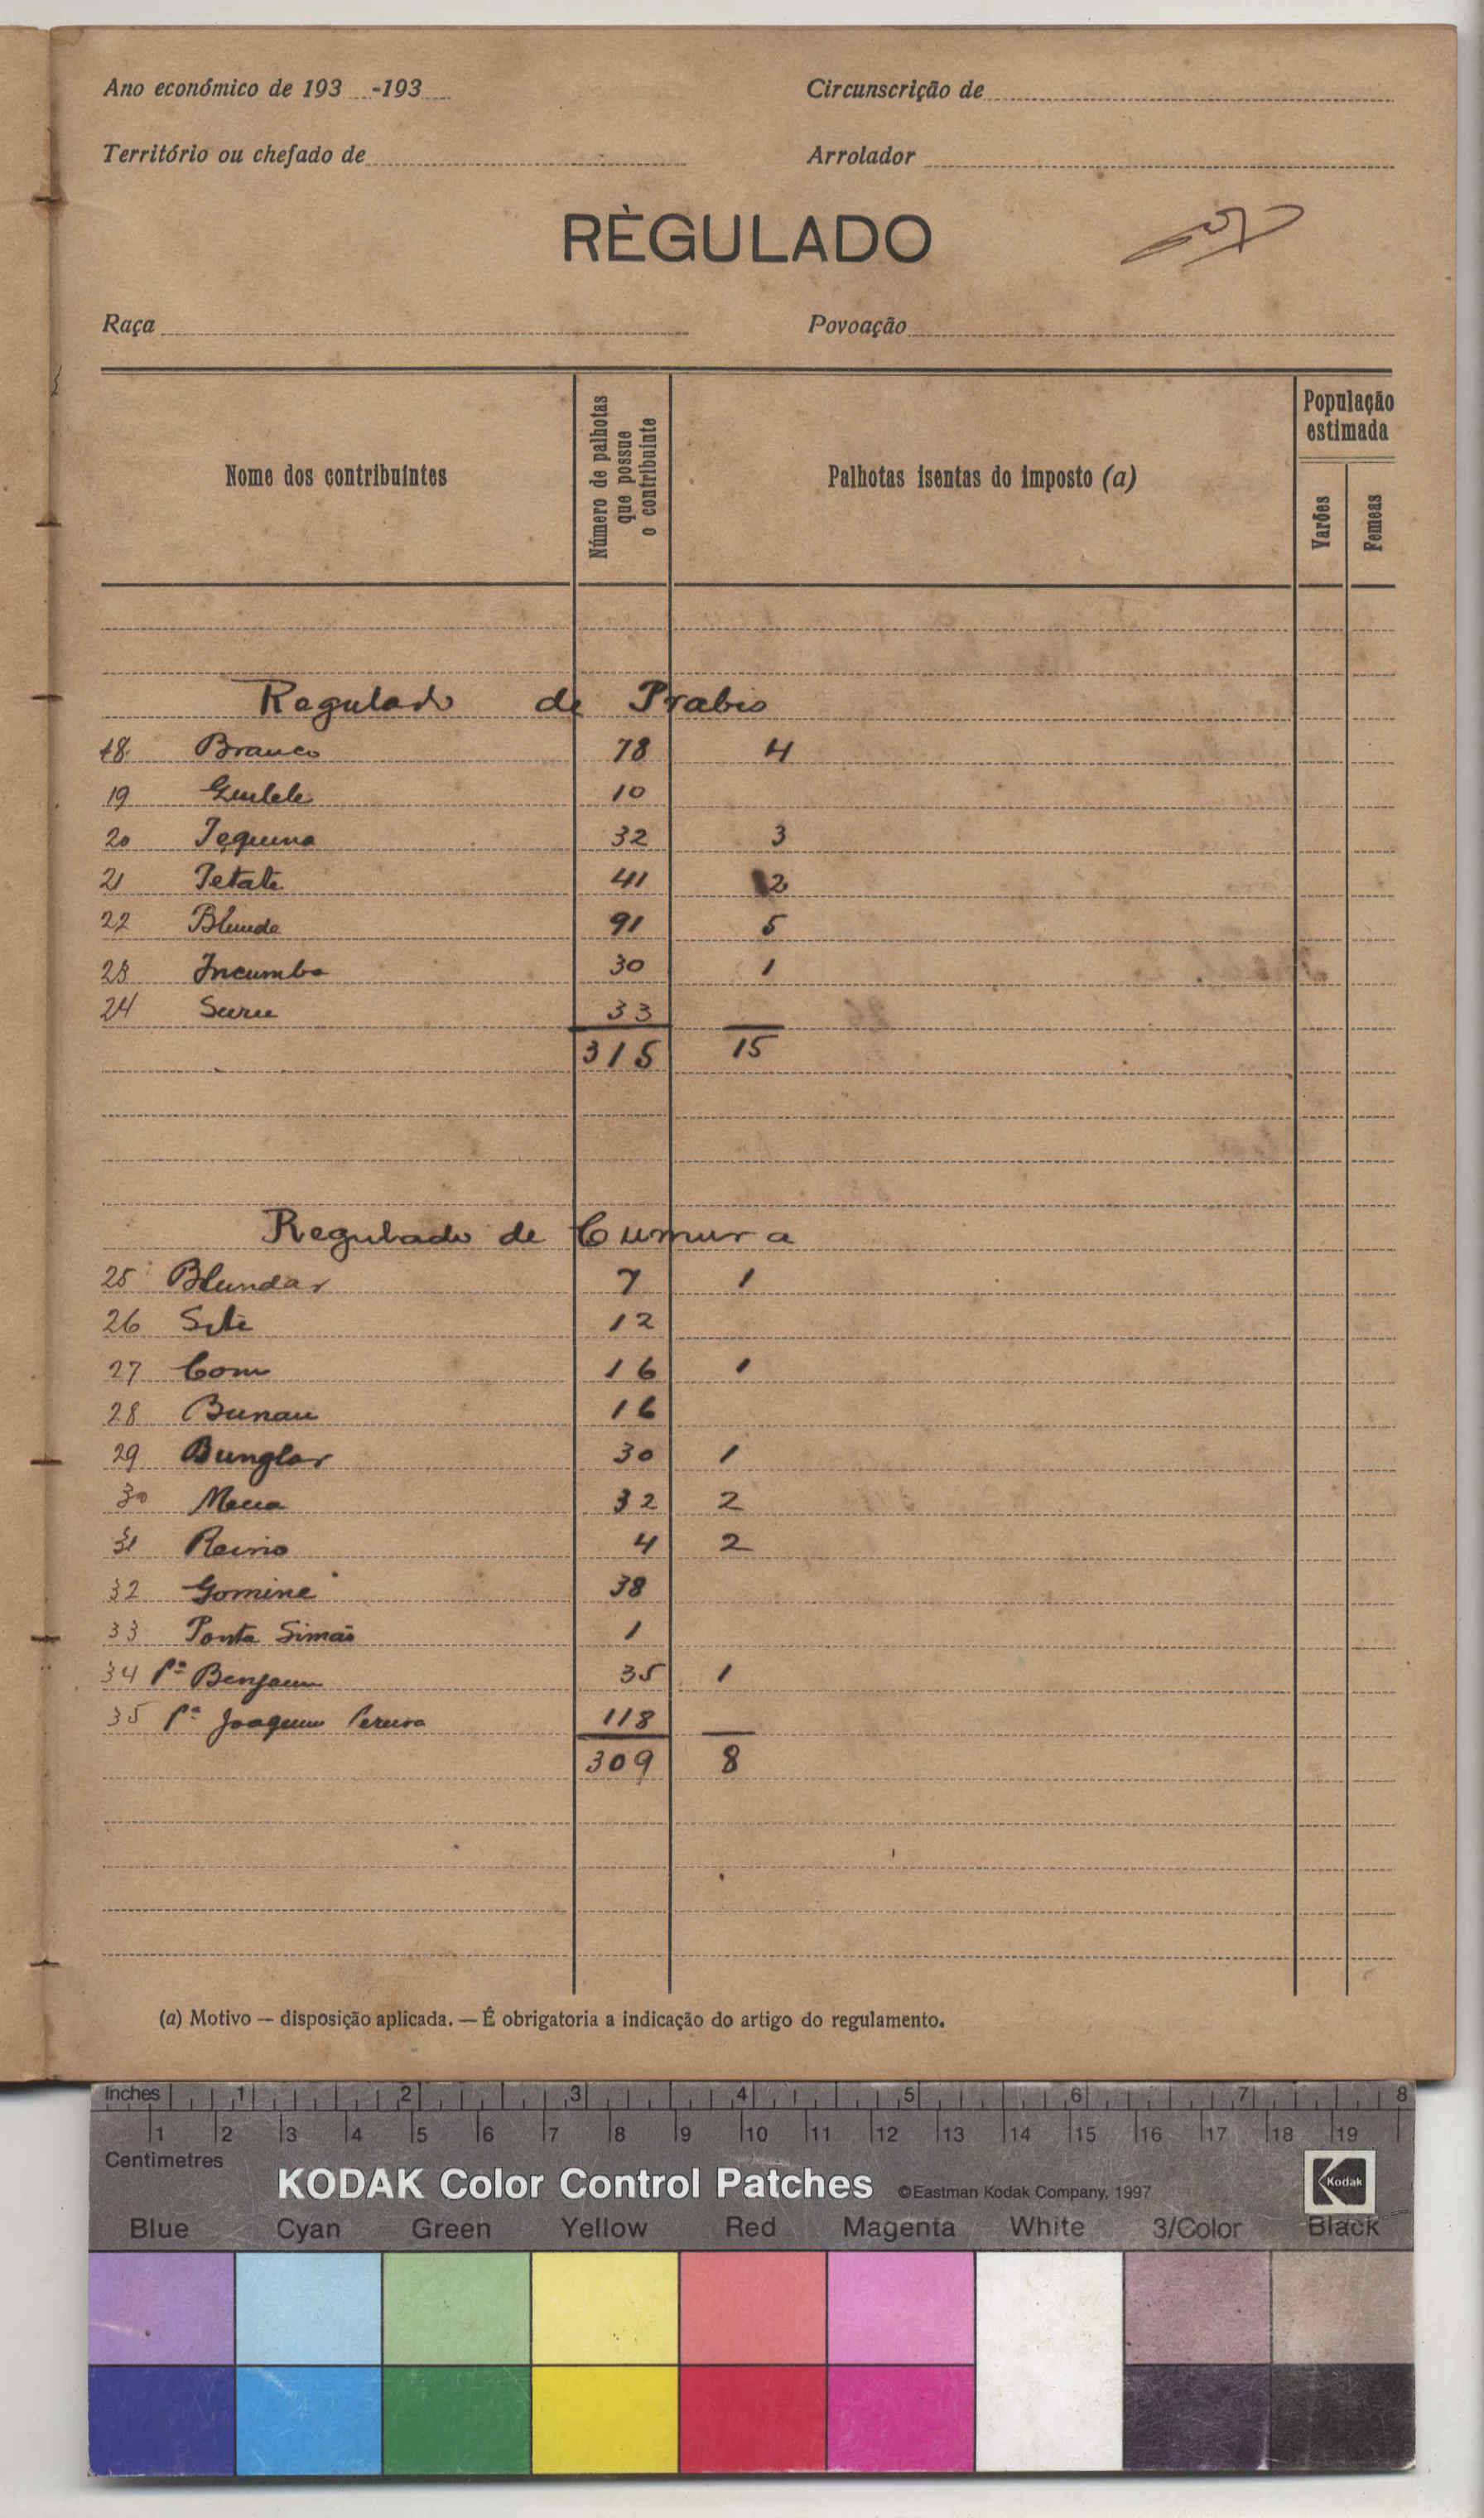 Ano económico de 193 -193
Circunscrição de
Território ou chefado de
Arrolador
RÈGULADO
Raça
Povoação
Nome dos contribuintes
Número de palhotas que possue o contribuinte
Palhotas isentas do imposto (a)
População estimada
Varões
Femeas
Regulado de Prabis
18 Branco 78 4
19 10
20 Jequina 32 3
21 Petate 41 2
22 Blunde 91 5
23 Incumba 30 1
24 Suru 33
315 15
Regulado de Cumura
25 Blundar 7 1
26 12
27 Com 16 1
28 Bunau 16
29 Bunglar 30 1
30 32 2
31 Reino 4 2
32 Gomine 38
33 Ponta Simão 1
34 Pª Benjamim 35 1
35 Pª Joaquim Pereira 118
309 8
(a) Motivo — disposição aplicada. — É obrigatoria a indicação do artigo do regulamento.
Inches 1 2 3 4 5 6 7 8
1 2 3 4 5 6 7 8 9 10 11 12 13 14 15 16 17 18 19
Centimetres
KODAK Color Control Patches ©Eastman Kodak Company, 1997 Kodak
Blue Cyan Green Yellow Red Magenta White 3/Color Black